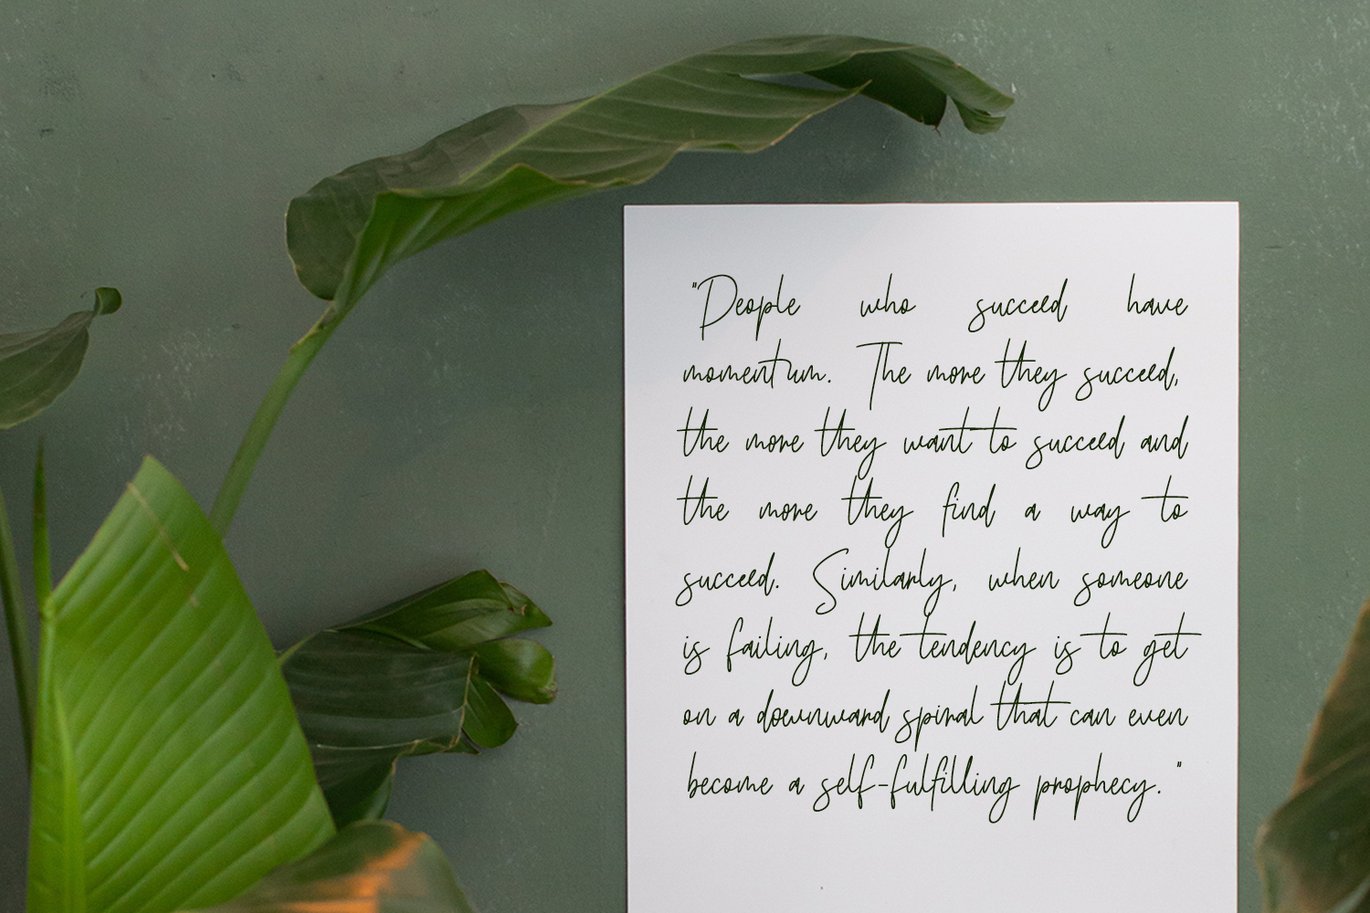 "People who succeed have
momentum. The more they succeed,
the more they want to succeed and
the more they find a way to
succeed. Similarly, when someone
is failing, the tendency is to get
on a downward spiral that can even
become a self-fulfilling prophecy."